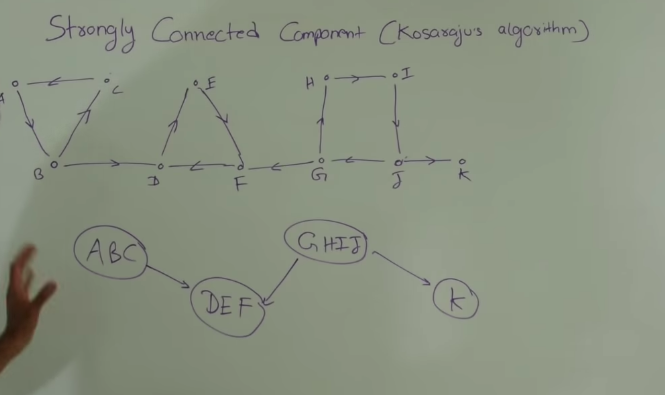 Strongly Connected Component (Kosaraju's algorithm)
A C E H I
B D F G J K
ABC GHIJ
DEF K